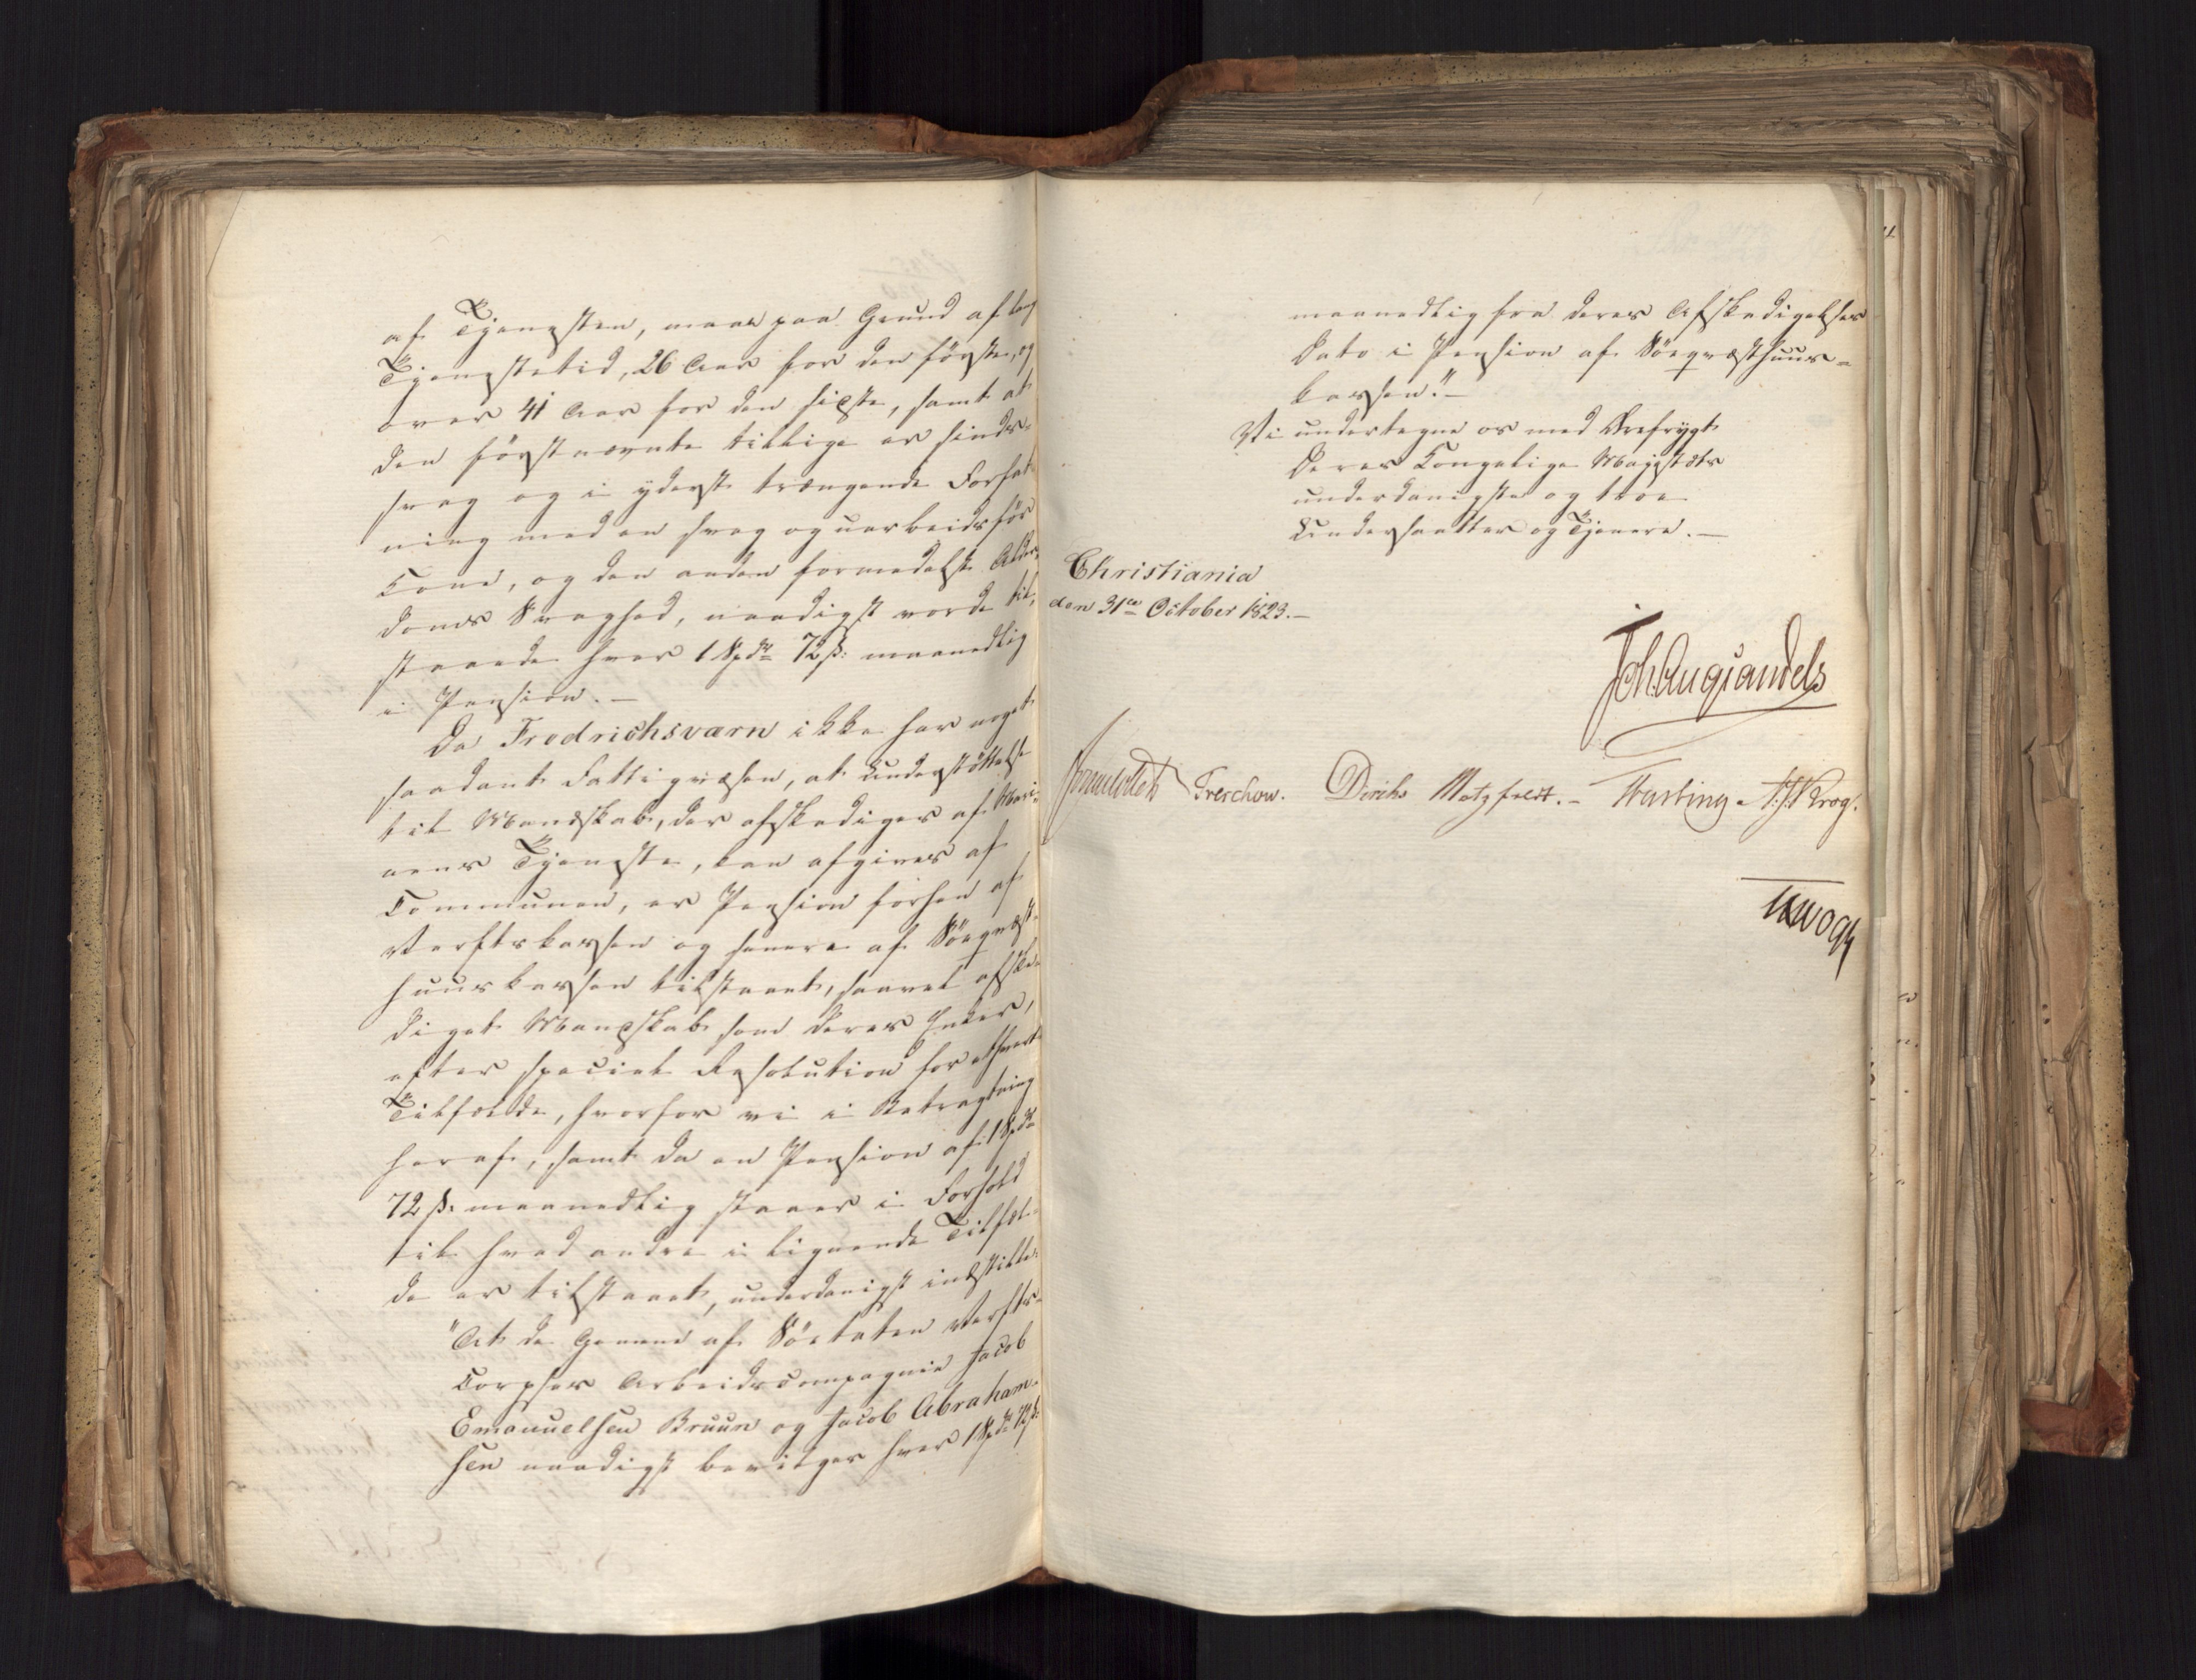 af Tjenesten, maae paa Grund af lang
Tjenestetid, 26 Aar for den første, og
over 41 Aar for den sidste, samt at
den førstnævnte tillige er sinds-
svag og i yderst trængende Forfat-
ning med en svag og uarbeidsfør
Kone, og den anden formedelst Alder-
doms Svaghed, naadigst vorde til-
staaede hver 1 Spdr 72 ß. maanedlig
i Pension.—
Da Fredrichsværn ikke har noget
saadant Fattigvæsen, at Understøttelse
til Mandskab, der afskediges af Mari-
nens Tjeneste, kan afgives af
Communen, er Pension forhen af
Verftskassen og senere af Søeqvæst-
huuskassen tilstaaet, saavel afske-
diget Mandskab som deres Enker,
efter speciel Resolution for ethvert
Tilfælde, hvorfor vi i Betragtning
heraf, samt da en Pension af 1 Spdr
72 ß. maanedlig staaer i Forhold
til hvad andre i lignende Tilfæl-
de er tilstaaet, underdanigst indstille:
"At de Gemene af Søetaten Verfts-
Corpses Arbeidscompagnie Jacob
Emanuelsen Bruun og Jacob Abraham-
sen naadigst bevilges hver 1 Spdr 72 ß.
maanedlig fra deres Afskedigelses
Dato i Pension af Søeqvæsthuus-
kassen."—
Vi undertegne os med Ærefrygt
Deres Kongelige Majestæts
underdanigste og troe
Undersaatter og Tjenere.—
Christiania
den 31te October 1823.—
Joh. Aug. Sandels
Sommelldt Treschow. Diriks Motzfeldt.— Fasting. J.H. Krog.
Vogt